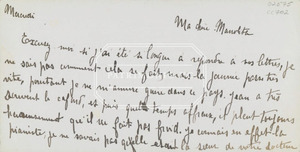 Mercredi
Ma chère Manolita
Excusez moi si j'ai été si longue a repondre a vos lettres, je
ne sais pas comment cela se fait, mais la journée passe très
vite, pourtant je ne m'amuse guère dans ce pays. Jean a très
souvent le cafard, et puis quel temps affreux, il pleut toujours
heureusement qu'il ne fait pas froid. Je connais en effet la
pianiste, je ne savais pas qu'elle était la sœur de votre docteur